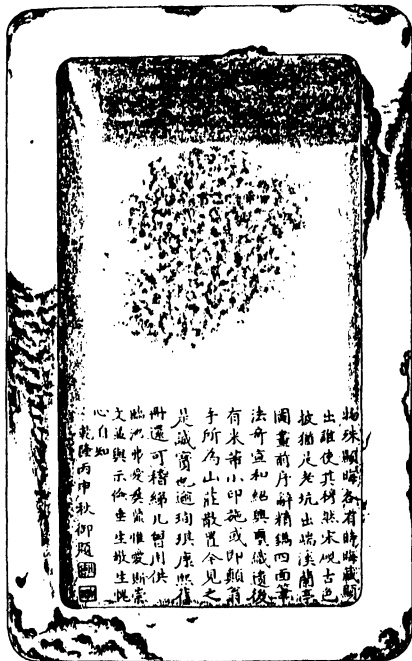 物殊顯晦各有時晦藏顯
出誰使其穆然宋硯古色
披猶是老坑出端溪蘭亭
圖畫前序辭精鐫四面筆
法奇宣和紹興璽識遺後
有米芾小印施或即顛翁
手所為山莊散置今見之
是誠寶也邇珣琪康熙舊
冊還可稽綈几曾用供
臨池弗愛惟愛斯崇
文益與示儉垂生敬生愧
心自知
乾隆丙申秋御題